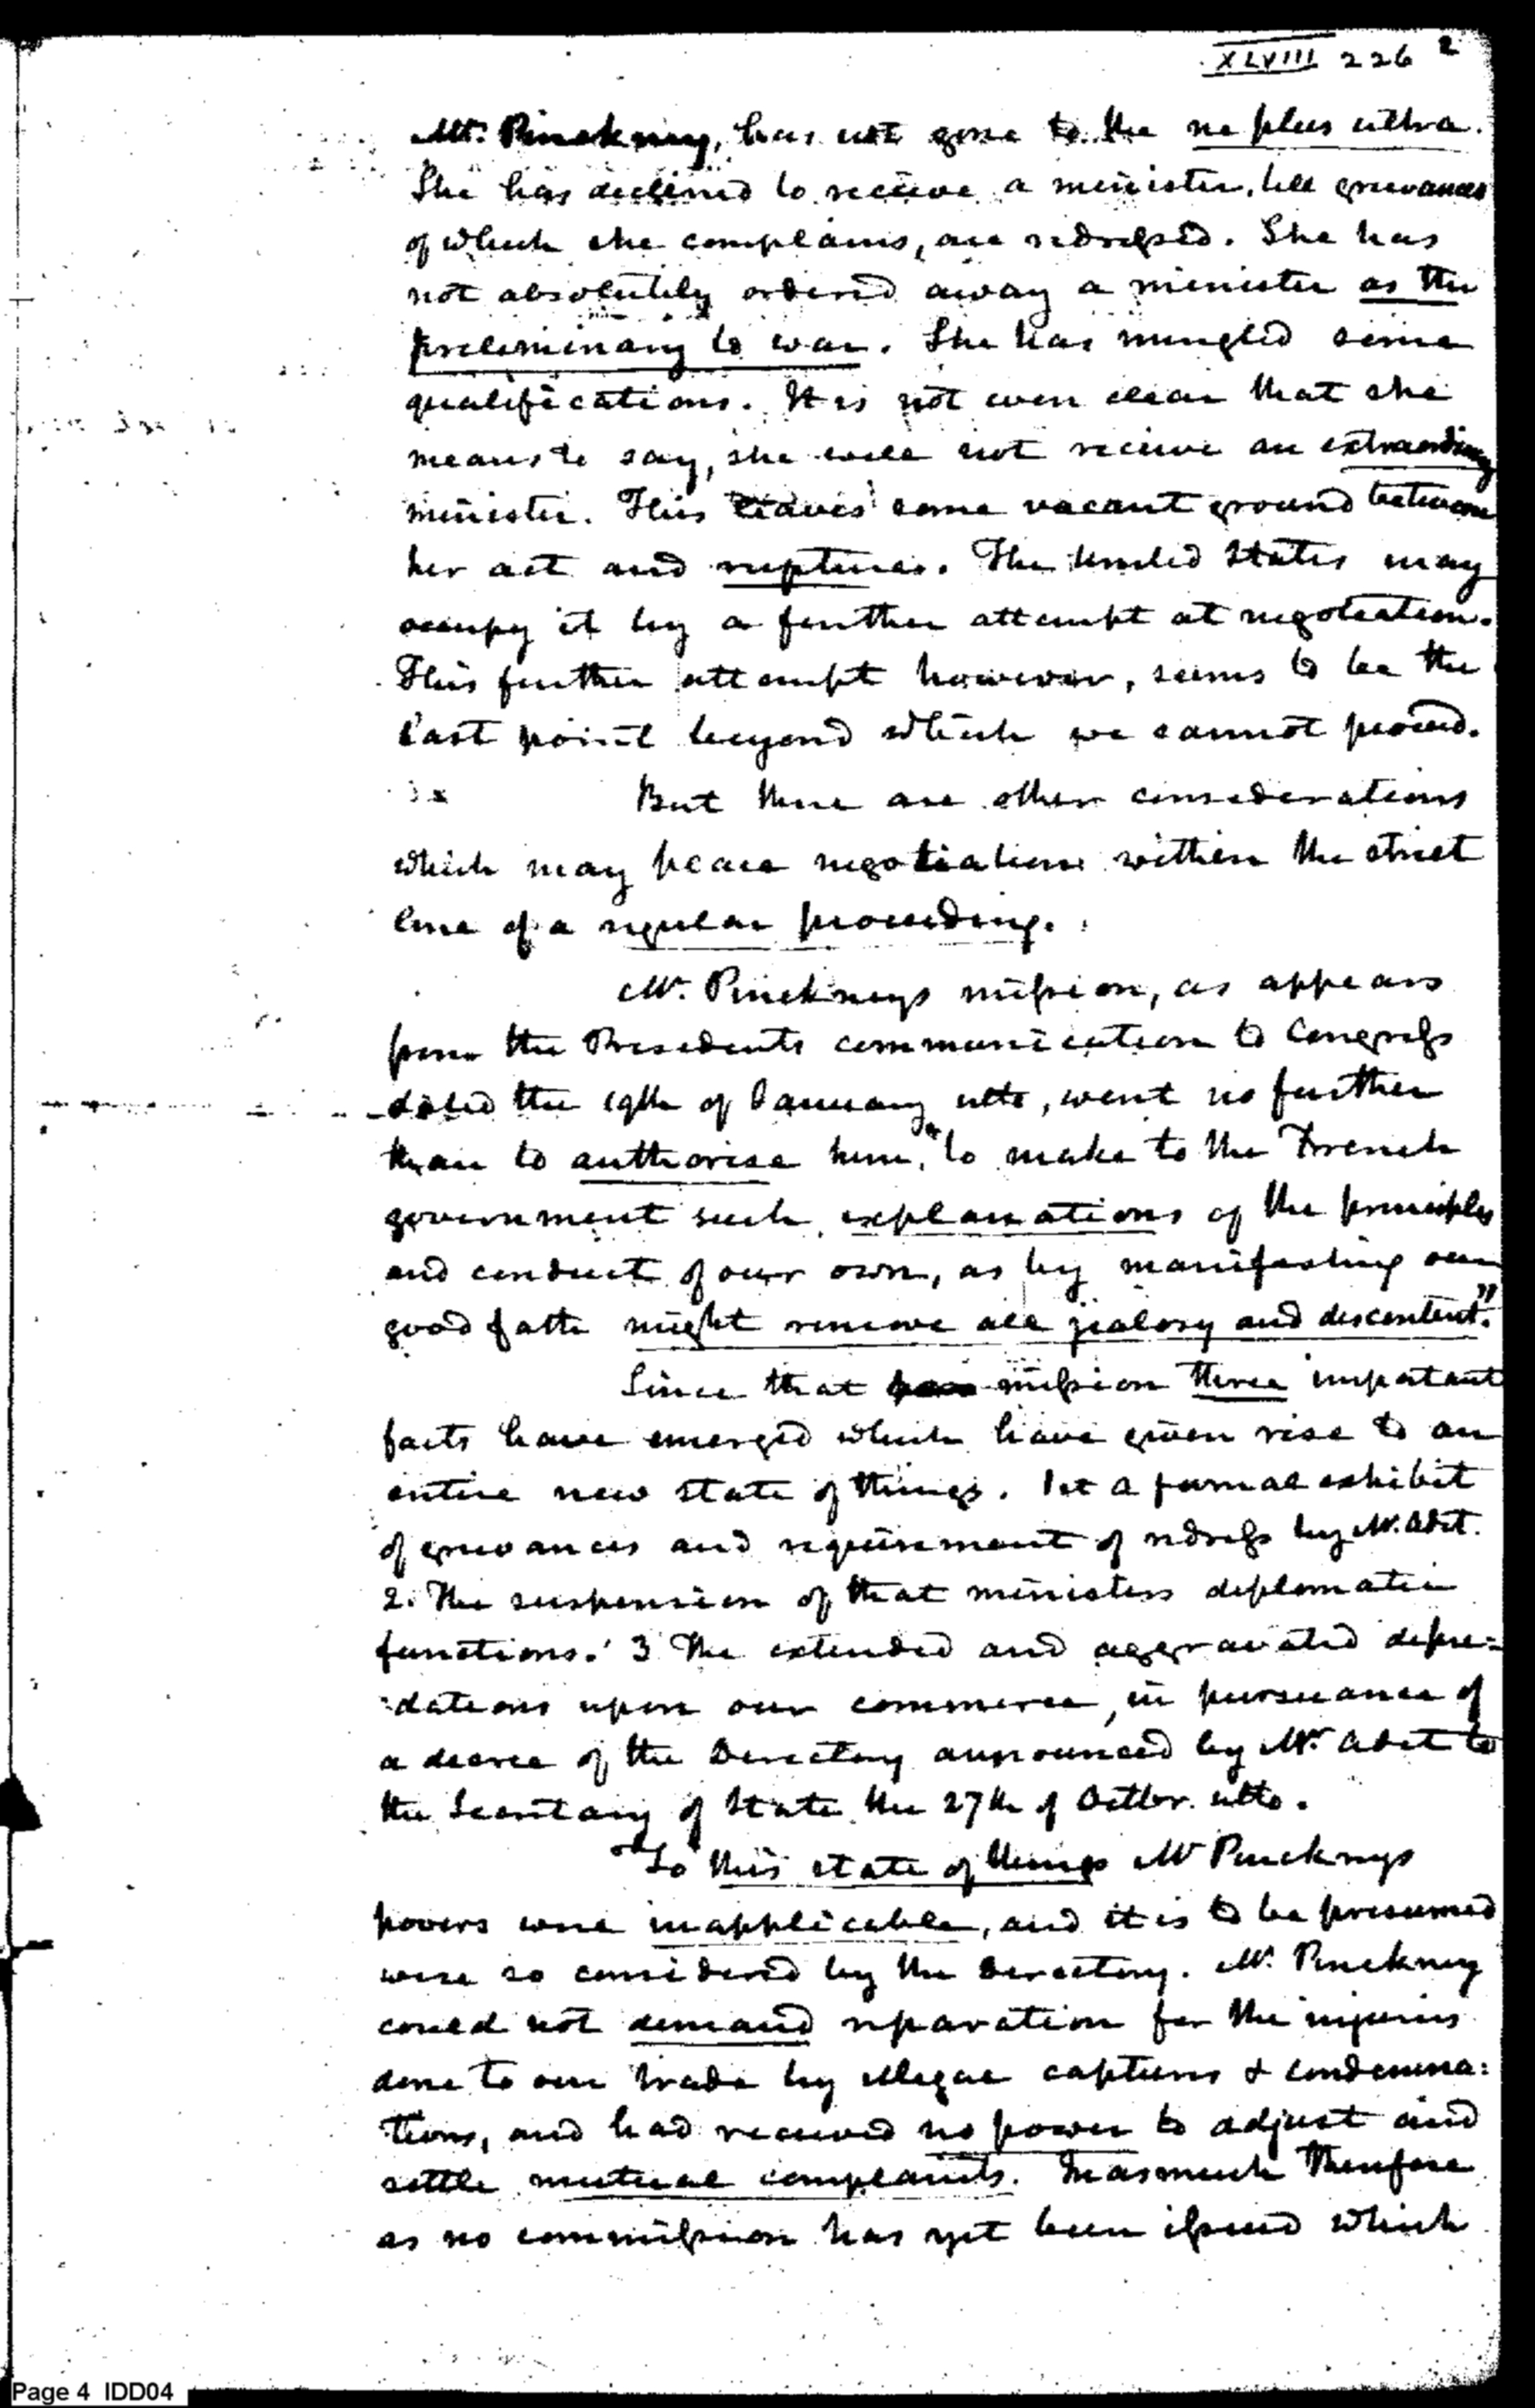 XLVIII 226 2
Mr. Pinckney, has not gone to the ne plus ultra.
She has declined to receive a minister, till grievances
of which she complains, are redressed. She has
not absolutely ordered away a minister as the
preliminary to war. She has mingled some
qualifications. It is not even clear that she
means to say, she will not receive an extraordinary
minister. This leaves some vacant ground between
her act and rupture. The United States may
occupy it by a further attempt at negotiation.
This further attempt however, seems to be the
last point beyond which we cannot proceed.
But there are other considerations
which may place negotiation within the strict
line of a regular proceeding.
Mr. Pinckneys mission, as appears
from the Presidents communication to Congress
dated the 19th of January ulto, went no further
than to authorise him, "to make to the French
government such explanations of the principles
and conduct of our own, as by manifesting our
good faith might remove all jealosy and discontent."
Since that mission three important
facts have emerged which have given rise to an
entire new state of things. 1st a formal exhibit
of grievances and requirement of redress by Mr. Adet.
2. The suspension of that ministers diplomatic
functions. 3 The extended and aggravated depre=
=dations upon our commerce, in pursuance of
a decree of the Directory announced by Mr. Adet to
the Secretary of State the 27th of Octbr. ulto.
To this state of things Mr Pinckneys
powers were inapplicable, and it is to be presumed
were so considered by the Directory. Mr. Pinckney
could not demand reparation for the injuries
done to our trade by illegal captures & condemna:
tions, and had received no power to adjust and
settle mutual complaints. Inasmuch therefore
as no commission has yet been issued which
Page 4 IDD04